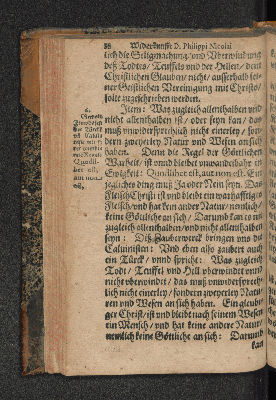 18 Wiederkunfft D. Philippi Nicolai
lich die Seligmachung/ und Uberwindung
deß Todtes/ Teuffels und der Hellen/ dem
Christlichen Glauben/ nicht/ ausserhalb sei-
ner Geistlichen Vereinigung mit Christo/
solte zugeschrieben werden.
Item: Was zugleich allenthalben und
nicht allenthalben ist/ oder seyn kan/ das
muß unwidersprechlich nicht einerley/ son-
dern zweyerley Natur und Wesen an sich
haben. Denn die Regel der Göttlichen
Warheit/ ist und bleibet unwandelbahr in
Ewigkeit: Quodlibet est, aut non est. Ein
jegliches ding muß Ja oder Nein seyn. Das
Fleisch Christi ist und bleibt ein warhafftig
Fleisch/ und hat kein ander Natur/ nemlich/
keine Göttliche an sich/ Darumb kan es nit
zugleich allenthalben/ und nicht allenthalben
seyn: Diß Zauberwerck bringen uns die
Calvinisten: Und eben also zaubert auch
ein Türck/ unnd spricht: Was zugleich
Todt/ Teuffel und Hell uberwindt und
nicht uberwindet/ das muß unwidersprech-
lich nicht einerley/ sondern zweyerley Natu-
ren und Wesen an sich haben. Ein gläubi-
ger Christ/ ist und bleibt nach seinem Wesen
ein Mensch/ und hat keine andere Natur/
nemlich keine Göttliche an sich: Darumb
kan